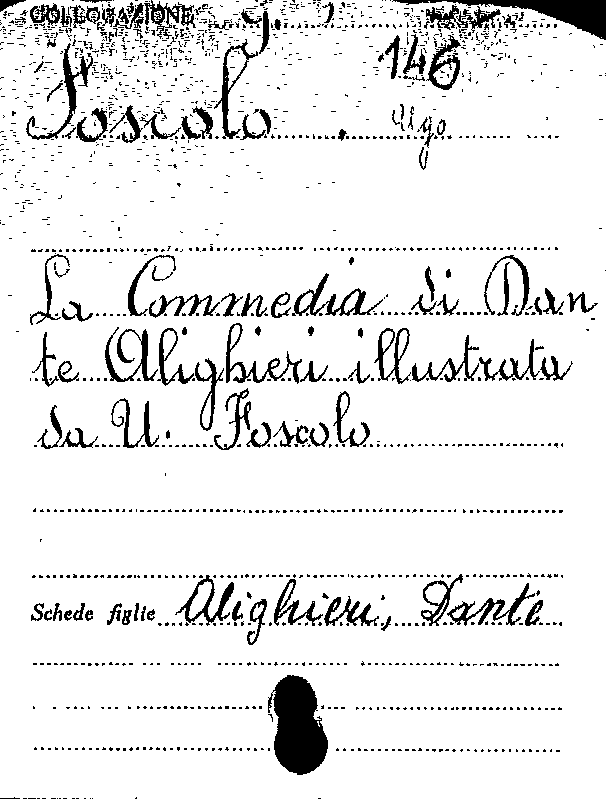 COLLOCAZIONE
146
Foscolo . Ugo
La Commedia di Dan
te Alighieri illustrata
da U. Foscolo
Schede figlie Alighieri, Dante